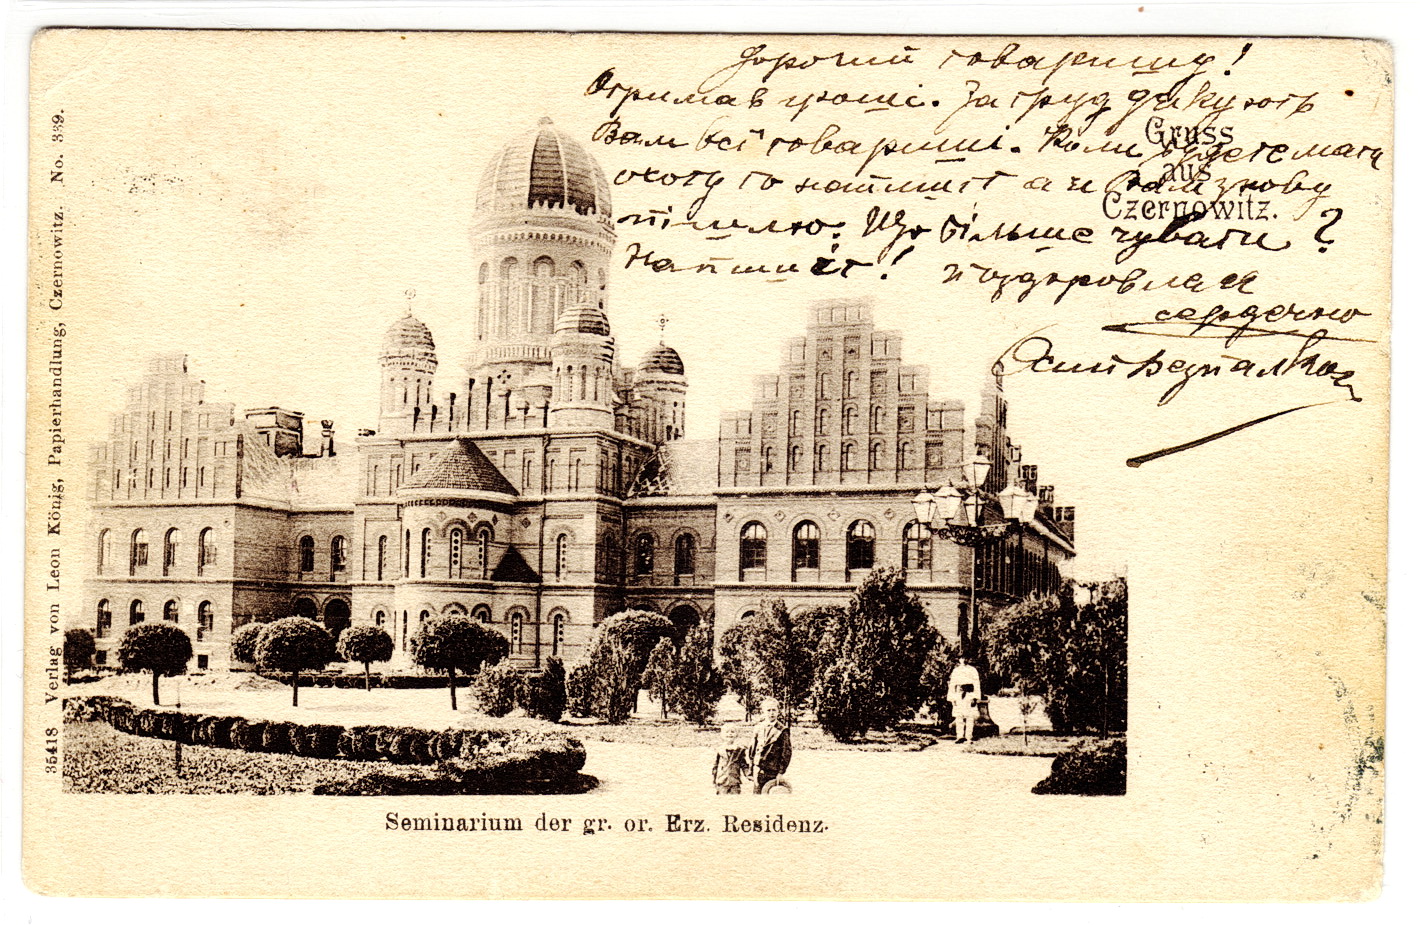 Дорогий товаришу!
Отримав гроші. За труд дякують
Вам всі товариші. Коли будете мати
охоту то напишіт а я Вам знову
пішлю. Що більше чувати?
Напишіт! Поздоровляя
сердечно
Gruss
aus
Czernowitz.
35418 Verlag von Leon König, Papierhandlung, Czernowitz. No. 339.
Seminarium der gr. or. Erz. Residenz.